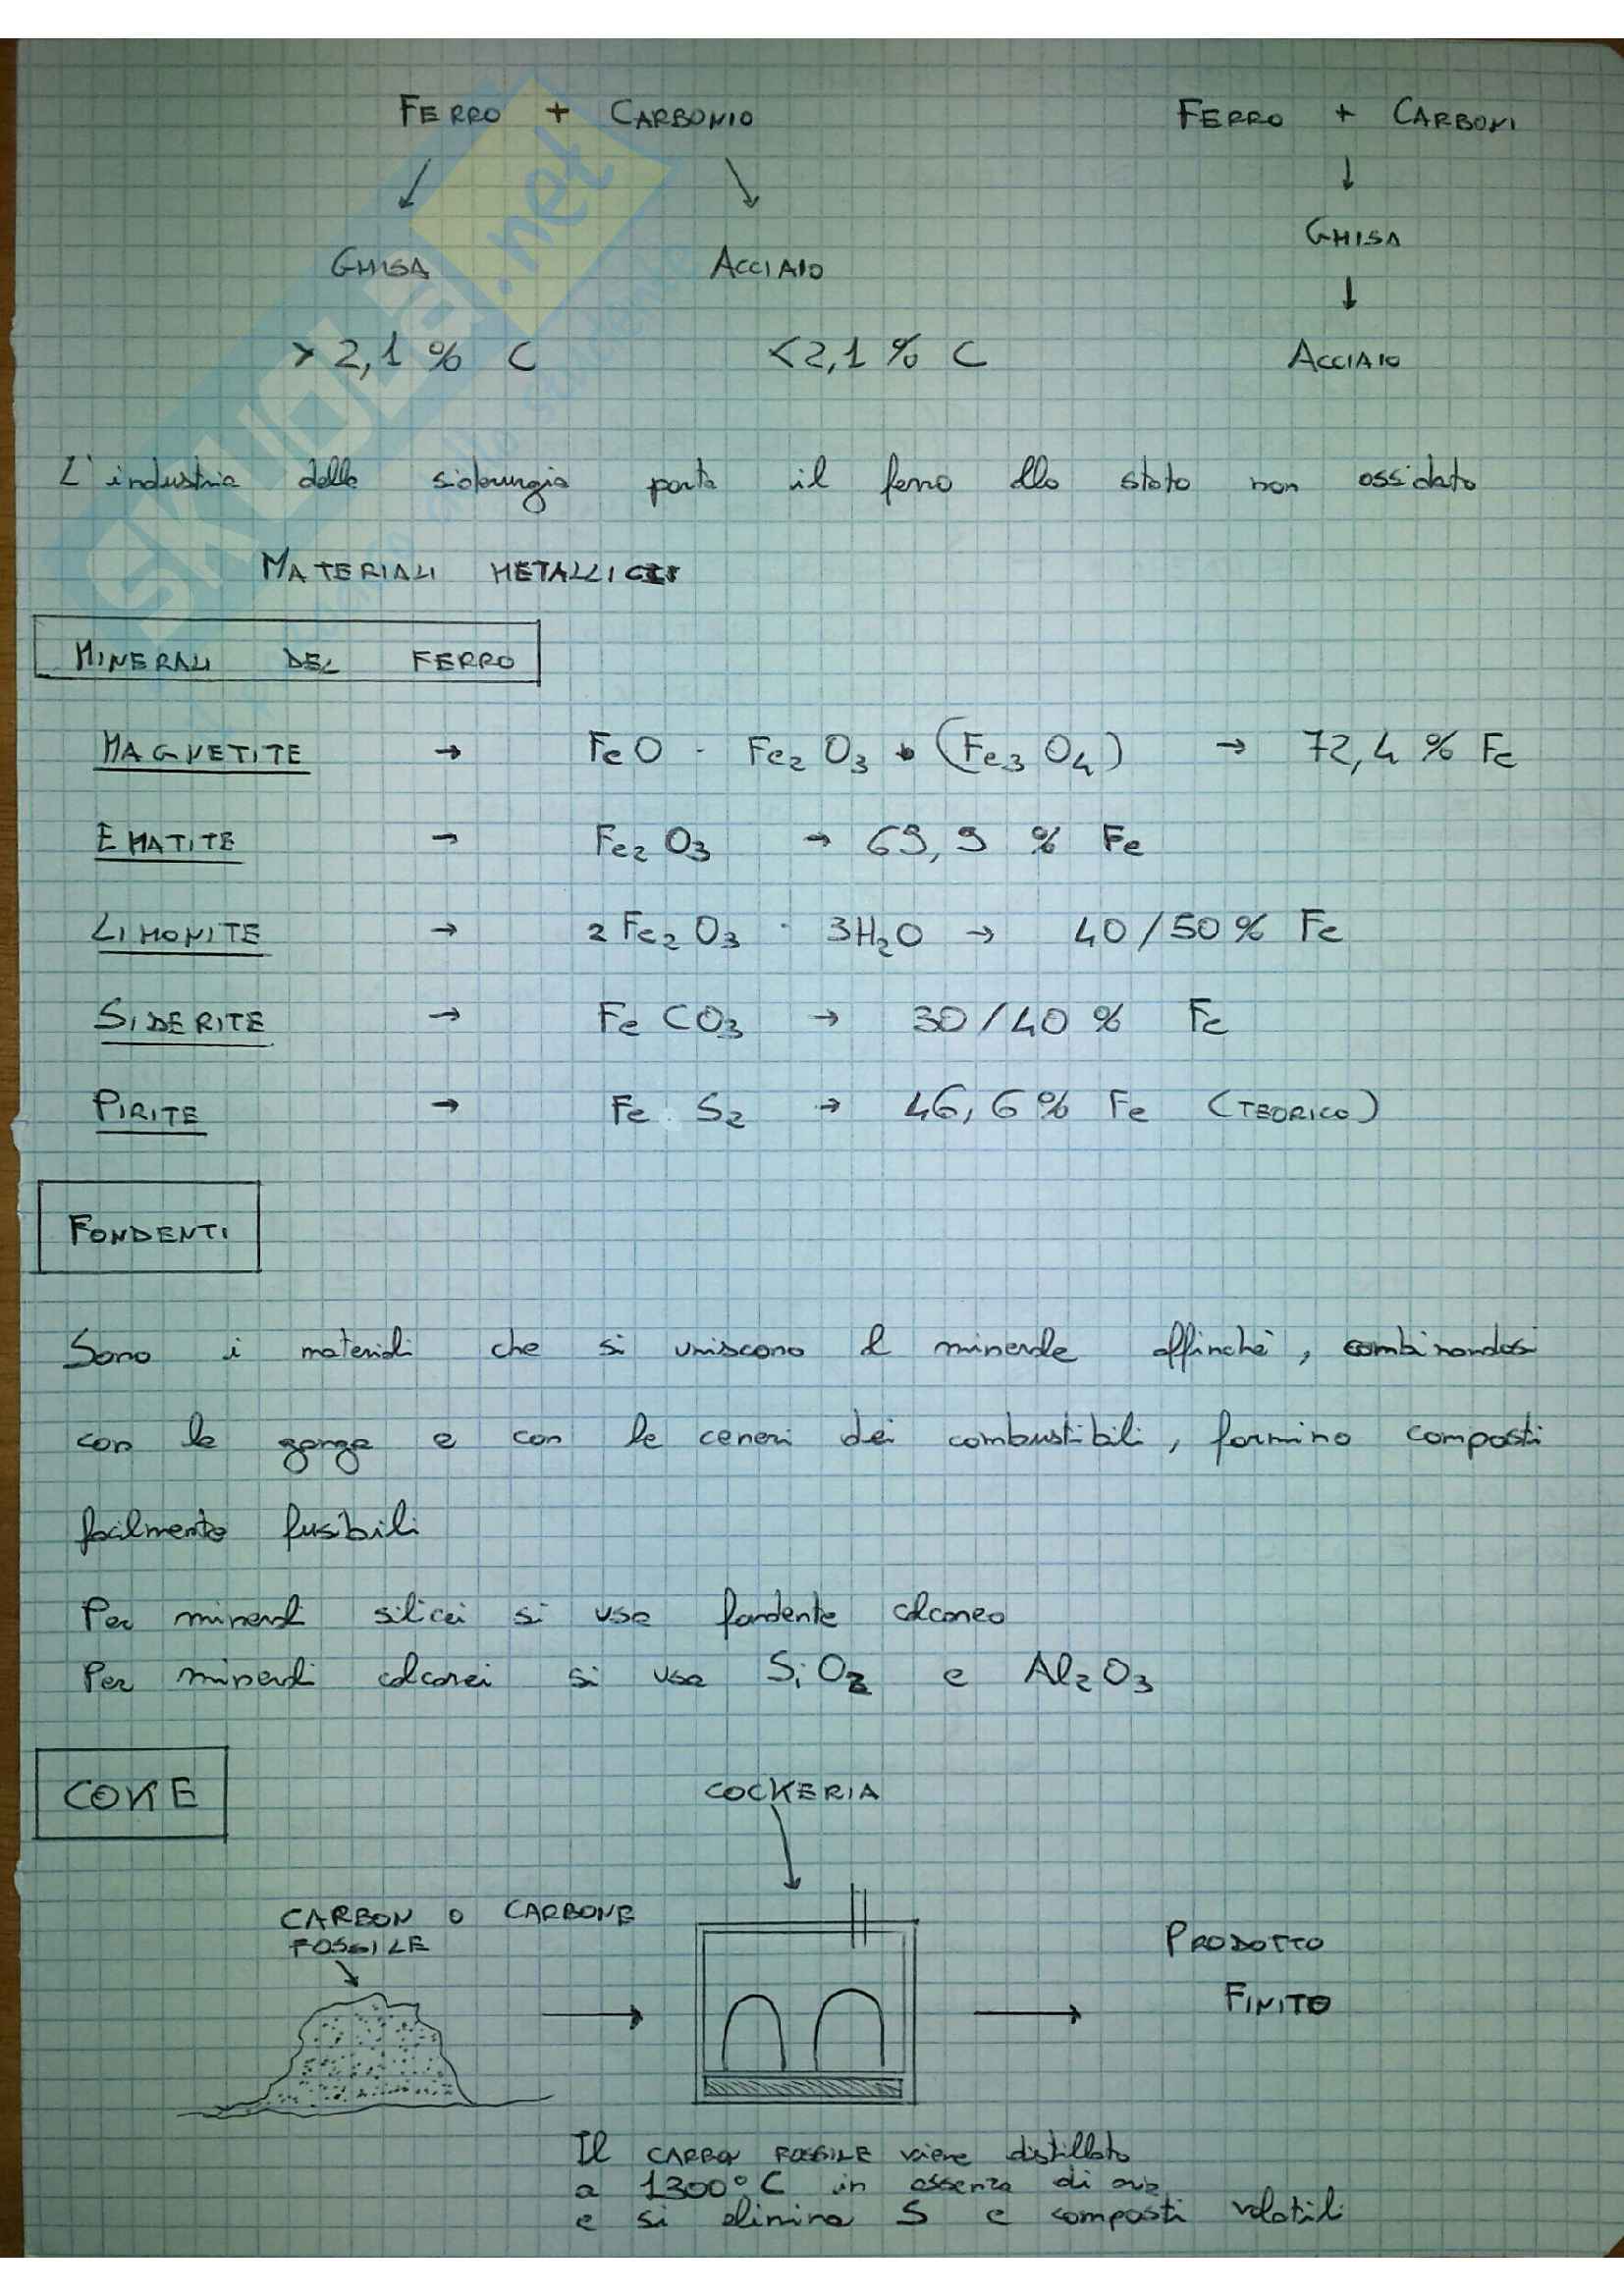 FERRO + CARBONIO
FERRO + CARBONI
GHISA
ACCIAIO
GHISA
> 2,1 % C
< 2,1 % C
ACCIAIO
L'industria della siderurgia porta il ferro allo stato non ossidato
MATERIALI METALLICI
MINERALI DEL FERRO
MAGNETITE → FeO · Fe₂O₃ • (Fe₃O₄) → 72,4 % Fe
EMATITE → Fe₂O₃ → 69,9 % Fe
LIMONITE → 2Fe₂O₃ · 3H₂O → 40/50 % Fe
SIDERITE → FeCO₃ → 30/40 % Fe
PIRITE → FeS₂ → 46,6 % Fe (TEORICO)
FONDENTI
Sono i materiali che si uniscono al minerale affinché, combinandosi
con la ganga e con le ceneri dei combustibili, formino composti
facilmente fusibili
Per minerali silicei si usa fondente calcareo
Per minerali calcarei si usa SiO₂ e Al₂O₃
COKE
COCKERIA
CARBON O CARBONE
FOSSILE
PRODOTTO
FINITO
Il CARBON FOSSILE viene distillato
a 1300°C in assenza di aria
e si elimina S e composti volatili
SKUOLA.net